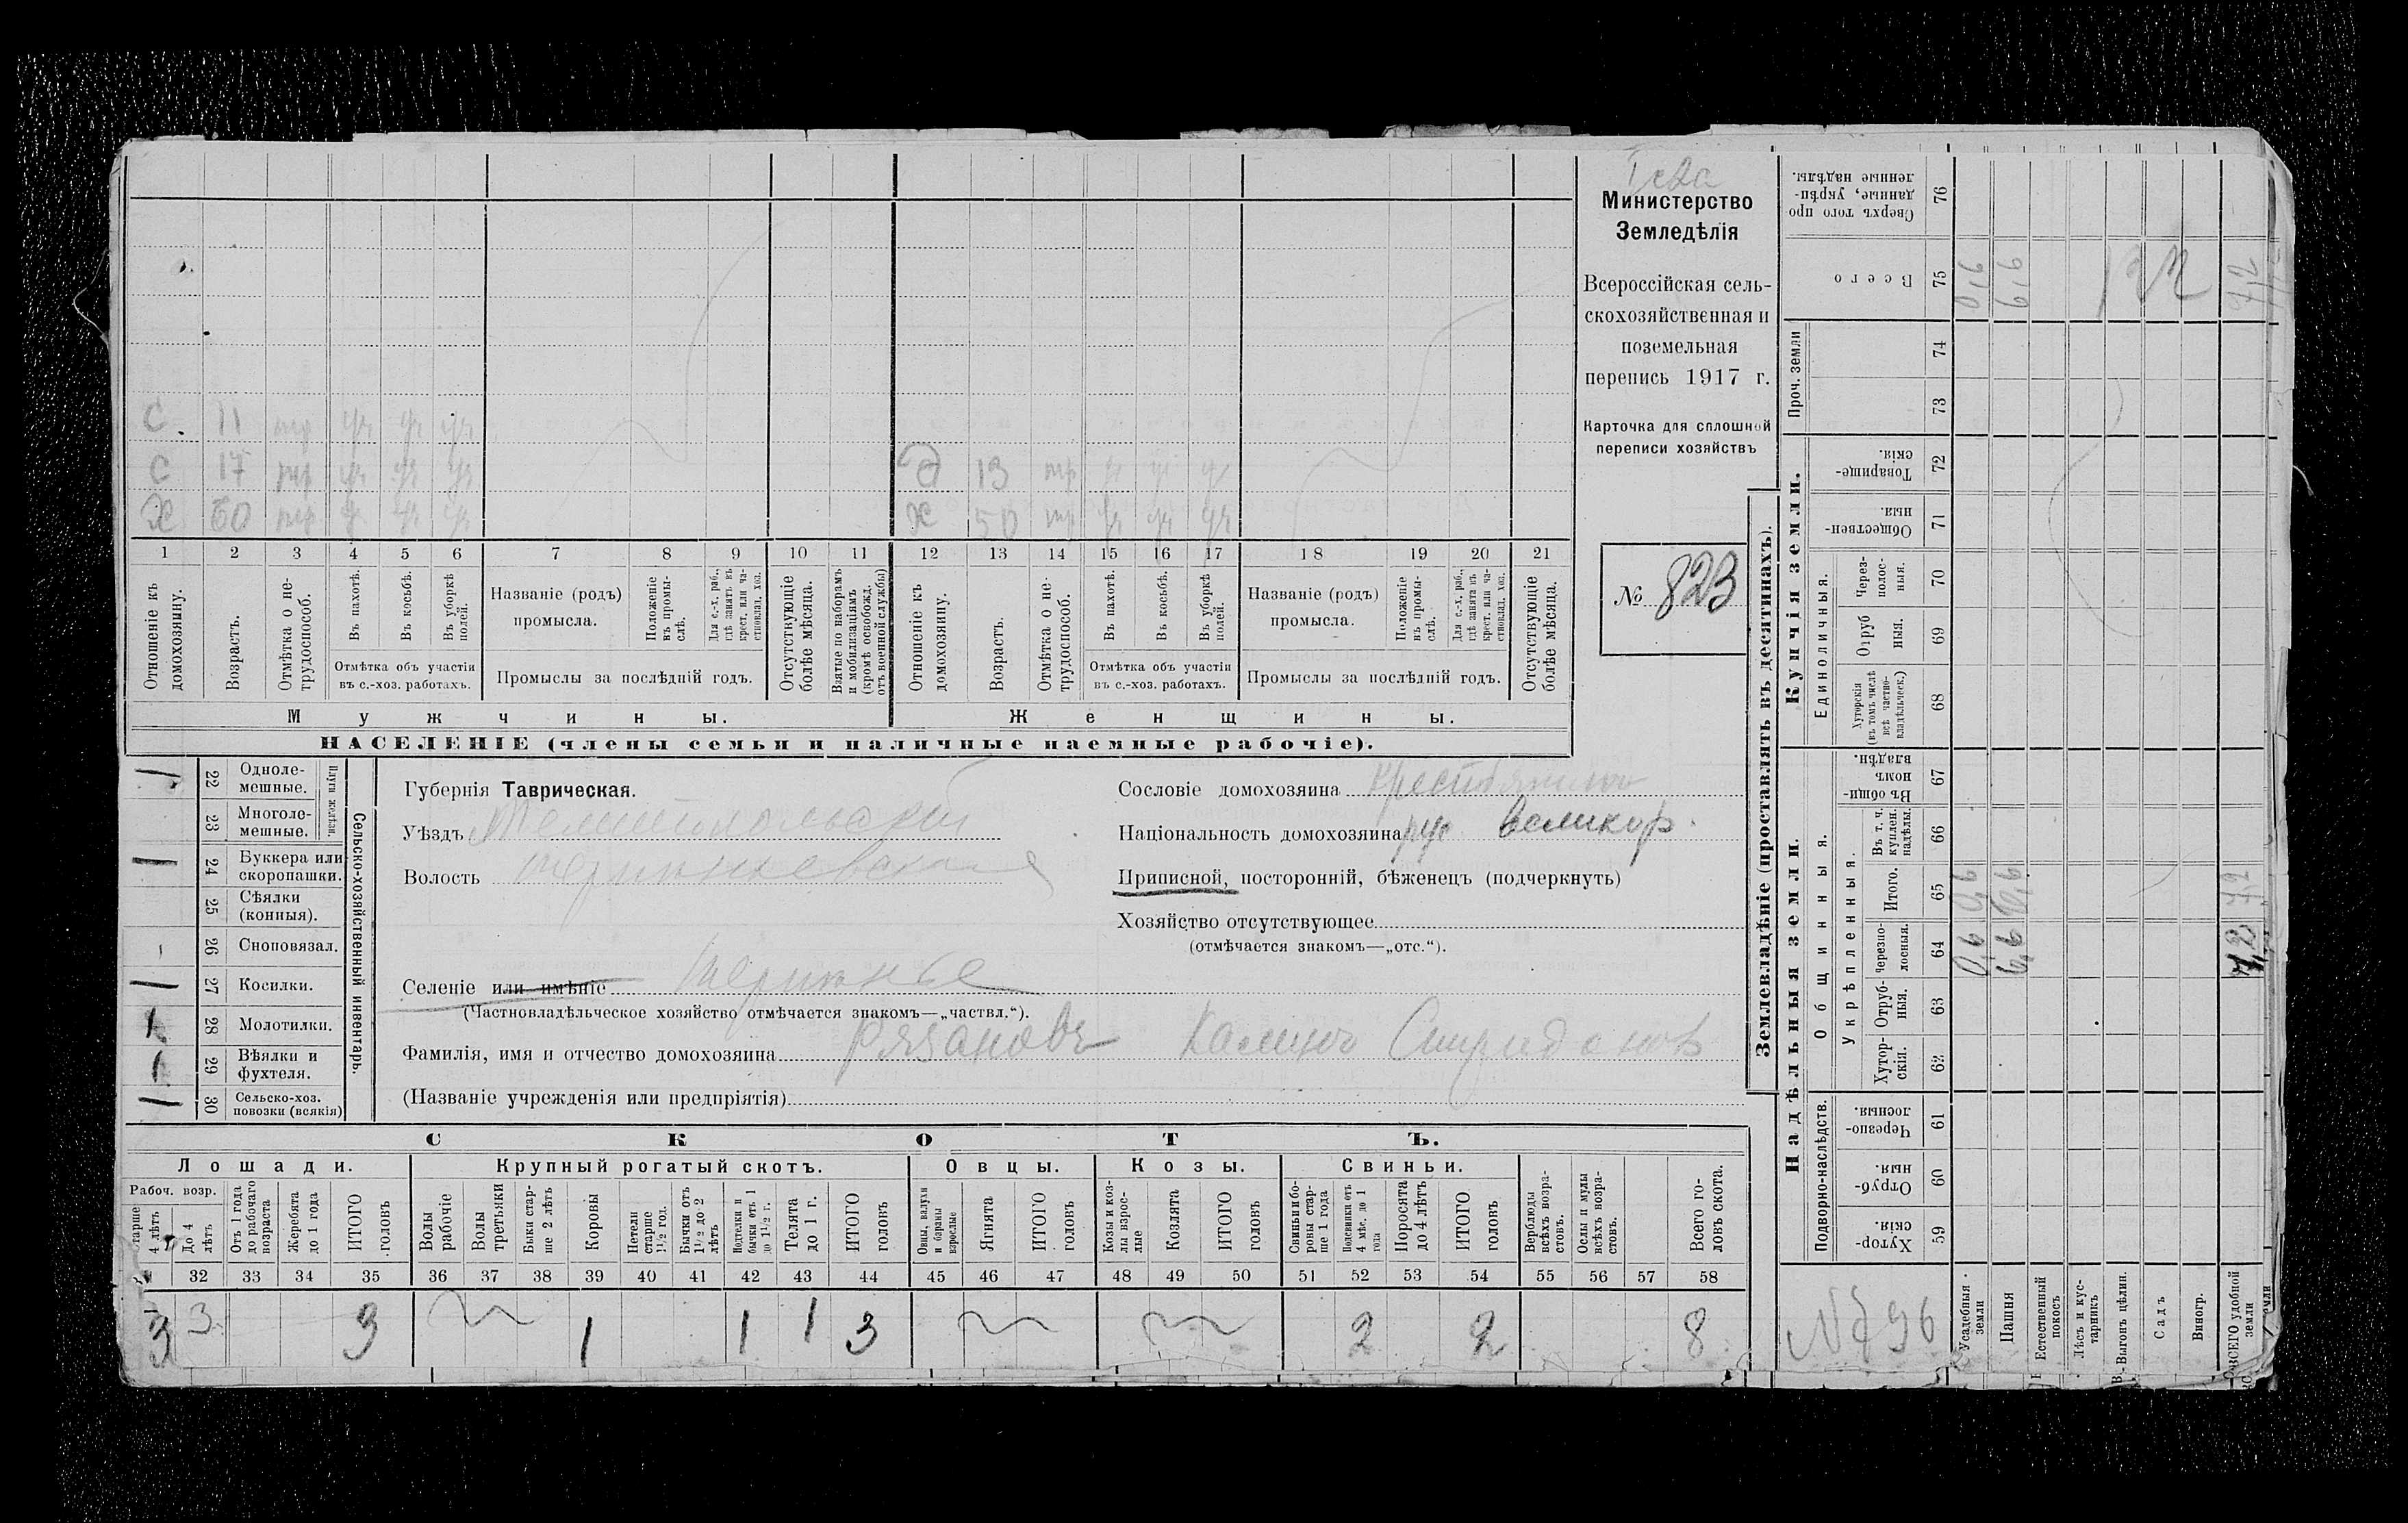 Министерство
Земледѣлія
Всероссійская сель-
скохозяйственная и
поземельная
перепись 1917 г.
Карточка для сплошной
переписи хозяйствъ
№ 823
С 11 тр
С 17 тр
Х 60 тр
Д 13 тр
Ж 50 тр
1 2 3 4 5 6 7 8 9 10 11 12 13 14 15 16 17 18 19 20 21
Отношеніе къ домохозяину.
Возрастъ.
Отмѣтка о не-трудоспособ.
Въ пахотѣ.
Въ косьбѣ.
Въ уборкѣ полей.
Отмѣтка объ участіи
въ с.-хоз. работахъ.
Названіе (родъ)
промысла.
Положеніе въ промы-слѣ.
Для с.-х. раб., гдѣ занятъ въ крест. или ча-стновлад. хоз.
Промыслы за послѣдній годъ.
Отсутствующіе болѣе мѣсяца.
Взятые по наборамъ и мобилизаціямъ (кромѣ освобожд. отъ военной службы)
Отношеніе къ домохозяину.
Возрастъ.
Отмѣтка о не-трудоспособ.
Въ пахотѣ.
Въ косьбѣ.
Въ уборкѣ полей.
Отмѣтка объ участіи
въ с.-хоз. работахъ.
Названіе (родъ)
промысла.
Положеніе въ промы-слѣ.
Для с.-х. раб., гдѣ занята въ крест. или ча-стновлад. хоз.
Промыслы за послѣдній годъ.
Отсутствующіе болѣе мѣсяца.
Мужчины.
Женщины.
НАСЕЛЕНІЕ (члены семьи и наличные наемные рабочіе).
Сельско-хозяйственный инвентарь.
Плуги желѣзн.
1 22 Одноле-мешные.
23 Многоле-мешные.
1 24 Буккера или скоропашки.
25 Сѣялки (конныя).
26 Сноповязал.
1 27 Косилки.
1 28 Молотилки.
1 29 Вѣялки и фухтеля.
1 30 Сельско-хоз. повозки (всякія)
Губернія Таврическая.
Уѣздъ Мелитопольскій
Волость
Селеніе или имѣніе
(Частновладѣльческое хозяйство отмѣчается знакомъ—„частвл.“).
Фамилія, имя и отчество домохозяина Рязановъ Калинъ Спиридонов
(Названіе учрежденія или предпріятія)
Сословіе домохозяина крестьянинъ
Національность домохозяина рус великор.
Приписной, посторонній, бѣженецъ (подчеркнуть)
Хозяйство отсутствующее
(отмѣчается знакомъ—„отс.“).
СКОТЪ.
Лошади.
Крупный рогатый скотъ.
Овцы.
Козы.
Свиньи.
Рабоч. возр.
старше 4 лѣтъ
До 4 лѣтъ
Отъ 1 года до рабочаго возраста
Жеребята до 1 года
ИТОГО головъ
Волы рабочіе
Волы третьяки
Быки стар-ше 2 лѣтъ
Коровы
Нетели старше 1½ год.
Бычки отъ 1½ до 2 лѣтъ
Подтелки и бычки отъ 1 до 1½ г.
Телята до 1 г.
ИТОГО головъ
Овцы, валухи и бараны взрослые
Ягнята
ИТОГО головъ
Козы и коз-лы взрос-лые
Козлята
ИТОГО головъ
Свиньи и бо-ровы стар-ше 1 года
Подсвинки отъ 4 мѣс. до 1 года
Поросята до 4 лѣтъ
ИТОГО головъ
Верблюды всѣхъ возра-стовъ.
Ослы и мулы всѣхъ возра-стовъ.
Всего го-ловъ скота.
32 33 34 35 36 37 38 39 40 41 42 43 44 45 46 47 48 49 50 51 52 53 54 55 56 57 58
3 3 3 1 1 1 3 2 2 8
Землевладѣніе (проставлять въ десятинахъ).
Купчія земли.
Надѣльныя земли.
Сверхъ того про-данные, укрѣп-ленные надѣлы. 76
Всего 75 0,6 6,6 7,2
Проч. земли
74
73
Товарище-скія. 72
Обществен-ныя. 71
Единоличныя.
Через-полос-ныя. 70
Отруб-ныя. 69
Хуторскія (въ томъ числѣ всѣ частно-владѣльческ.) 68
Общинныя.
Въ общи-номъ владѣн. 67
Укрѣпленныя.
Въ т. ч. куплен. надѣлы. 66
Итого. 65 0,6 6,6 7,2
черезпо-лосныя. 64 0,6 6,6 7,2
Отруб-ныя. 63
Хутор-скія. 62
Подворно-наслѣдств.
Черезпо-лосныя. 61
Отруб-ныя. 60
Хутор-скія. 59
Усадебныя земли
Пашня
Естественный покосъ
Лѣсъ и кус-тарникъ
Выгонъ цѣлин.
Садъ
Виногр.
ВСЕГО удобной земли